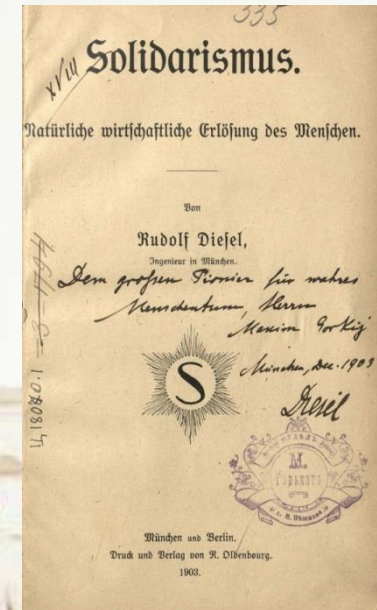 335
XVIII
Solidarismus.
Natürliche wirtschaftliche Erlösung des Menschen.
Von
Rudolf Diesel,
Ingenieur in München.
Dem großen Pionier für wahres
Menschentum, Herrn
Maxim Gorkij
München, Dec. 1903
Diesel
S
М.
ГОРЬКОГО
München und Berlin.
Druck und Verlag von R. Oldenbourg.
1903.